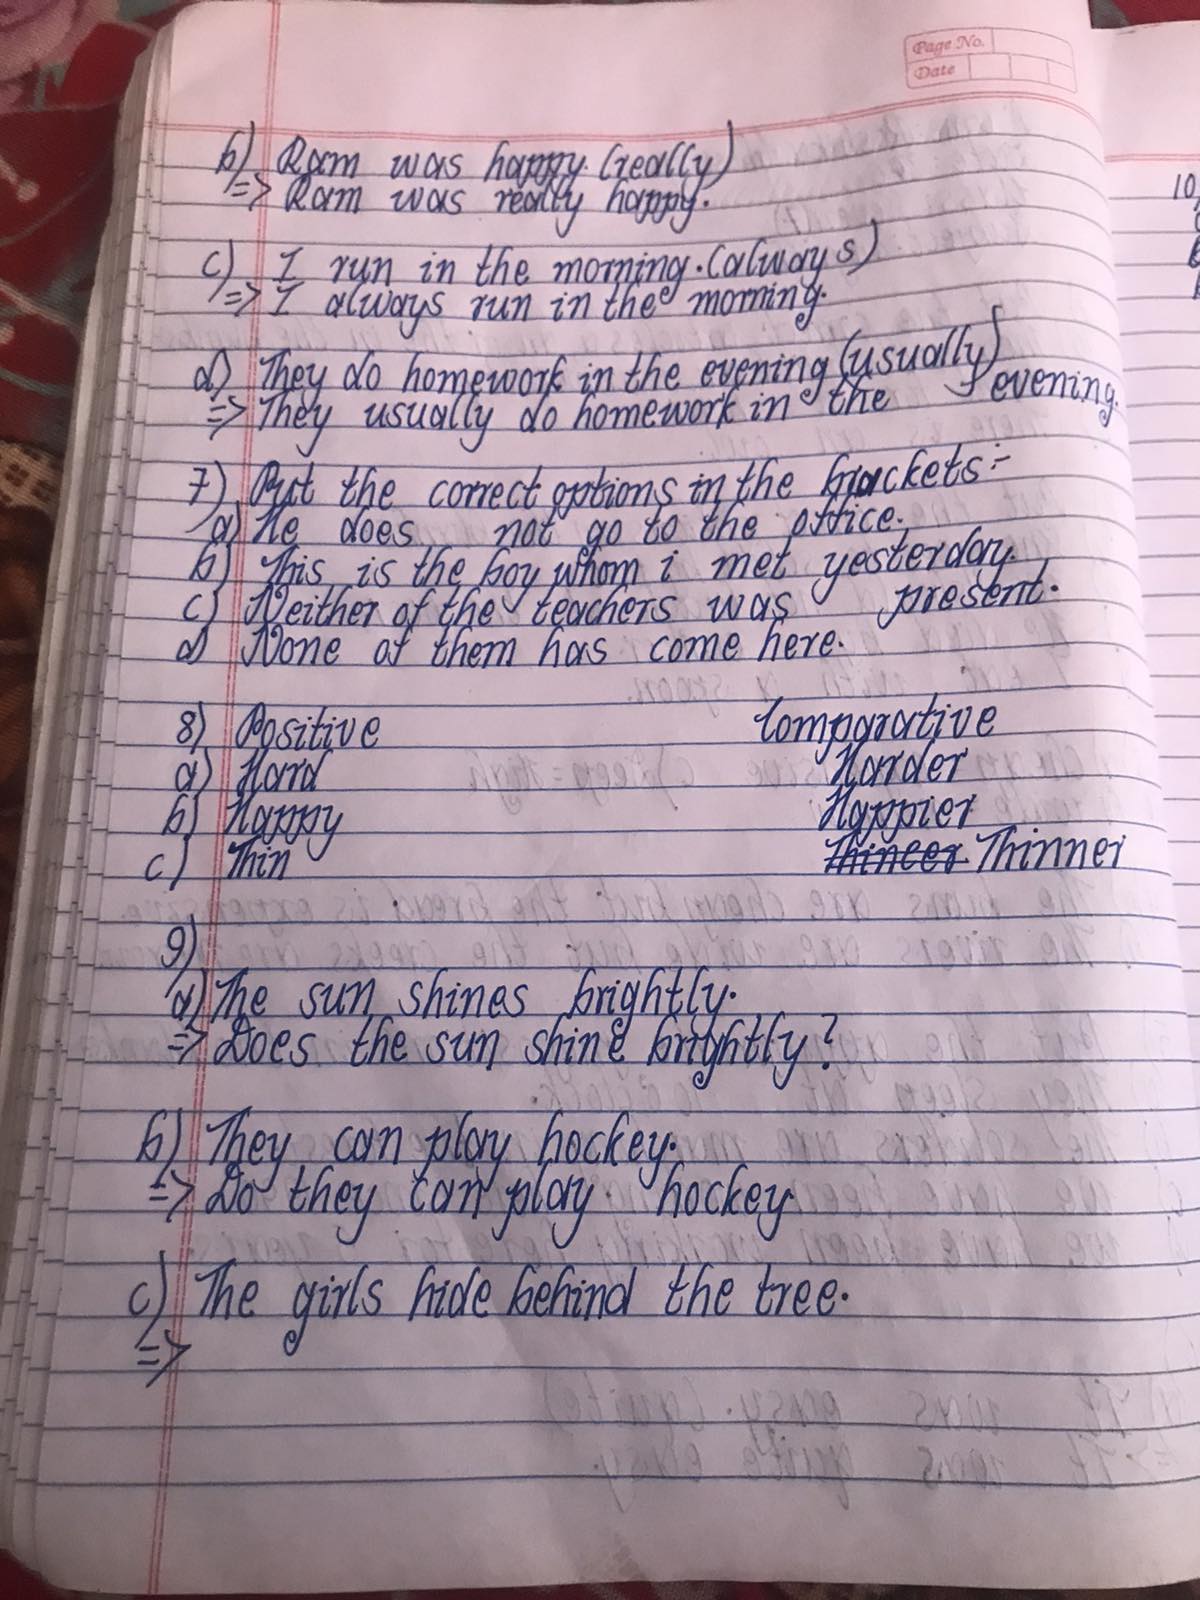 Page No.
Date
b) Ram was happy. (really)
=> Ram was really happy.
c) I run in the morning. (always)
=> I always run in the morning.
d) They do homework in the evening (usually)
=> They usually do homework in the evening.
7) Put the correct options in the brackets :-
a) He does not go to the office.
b) This is the boy whom i met yesterday.
c) Neither of the teachers was present.
d) None of them has come here.
8) Positive Comparative
a) Hard Harder
b) Happy Happier
c) Thin Thinner
9)
a) The sun shines brightly.
=> Does the sun shine brightly?
b) They can play hockey.
=> Do they can play hockey.
c) The girls hide behind the tree.
=>
10)